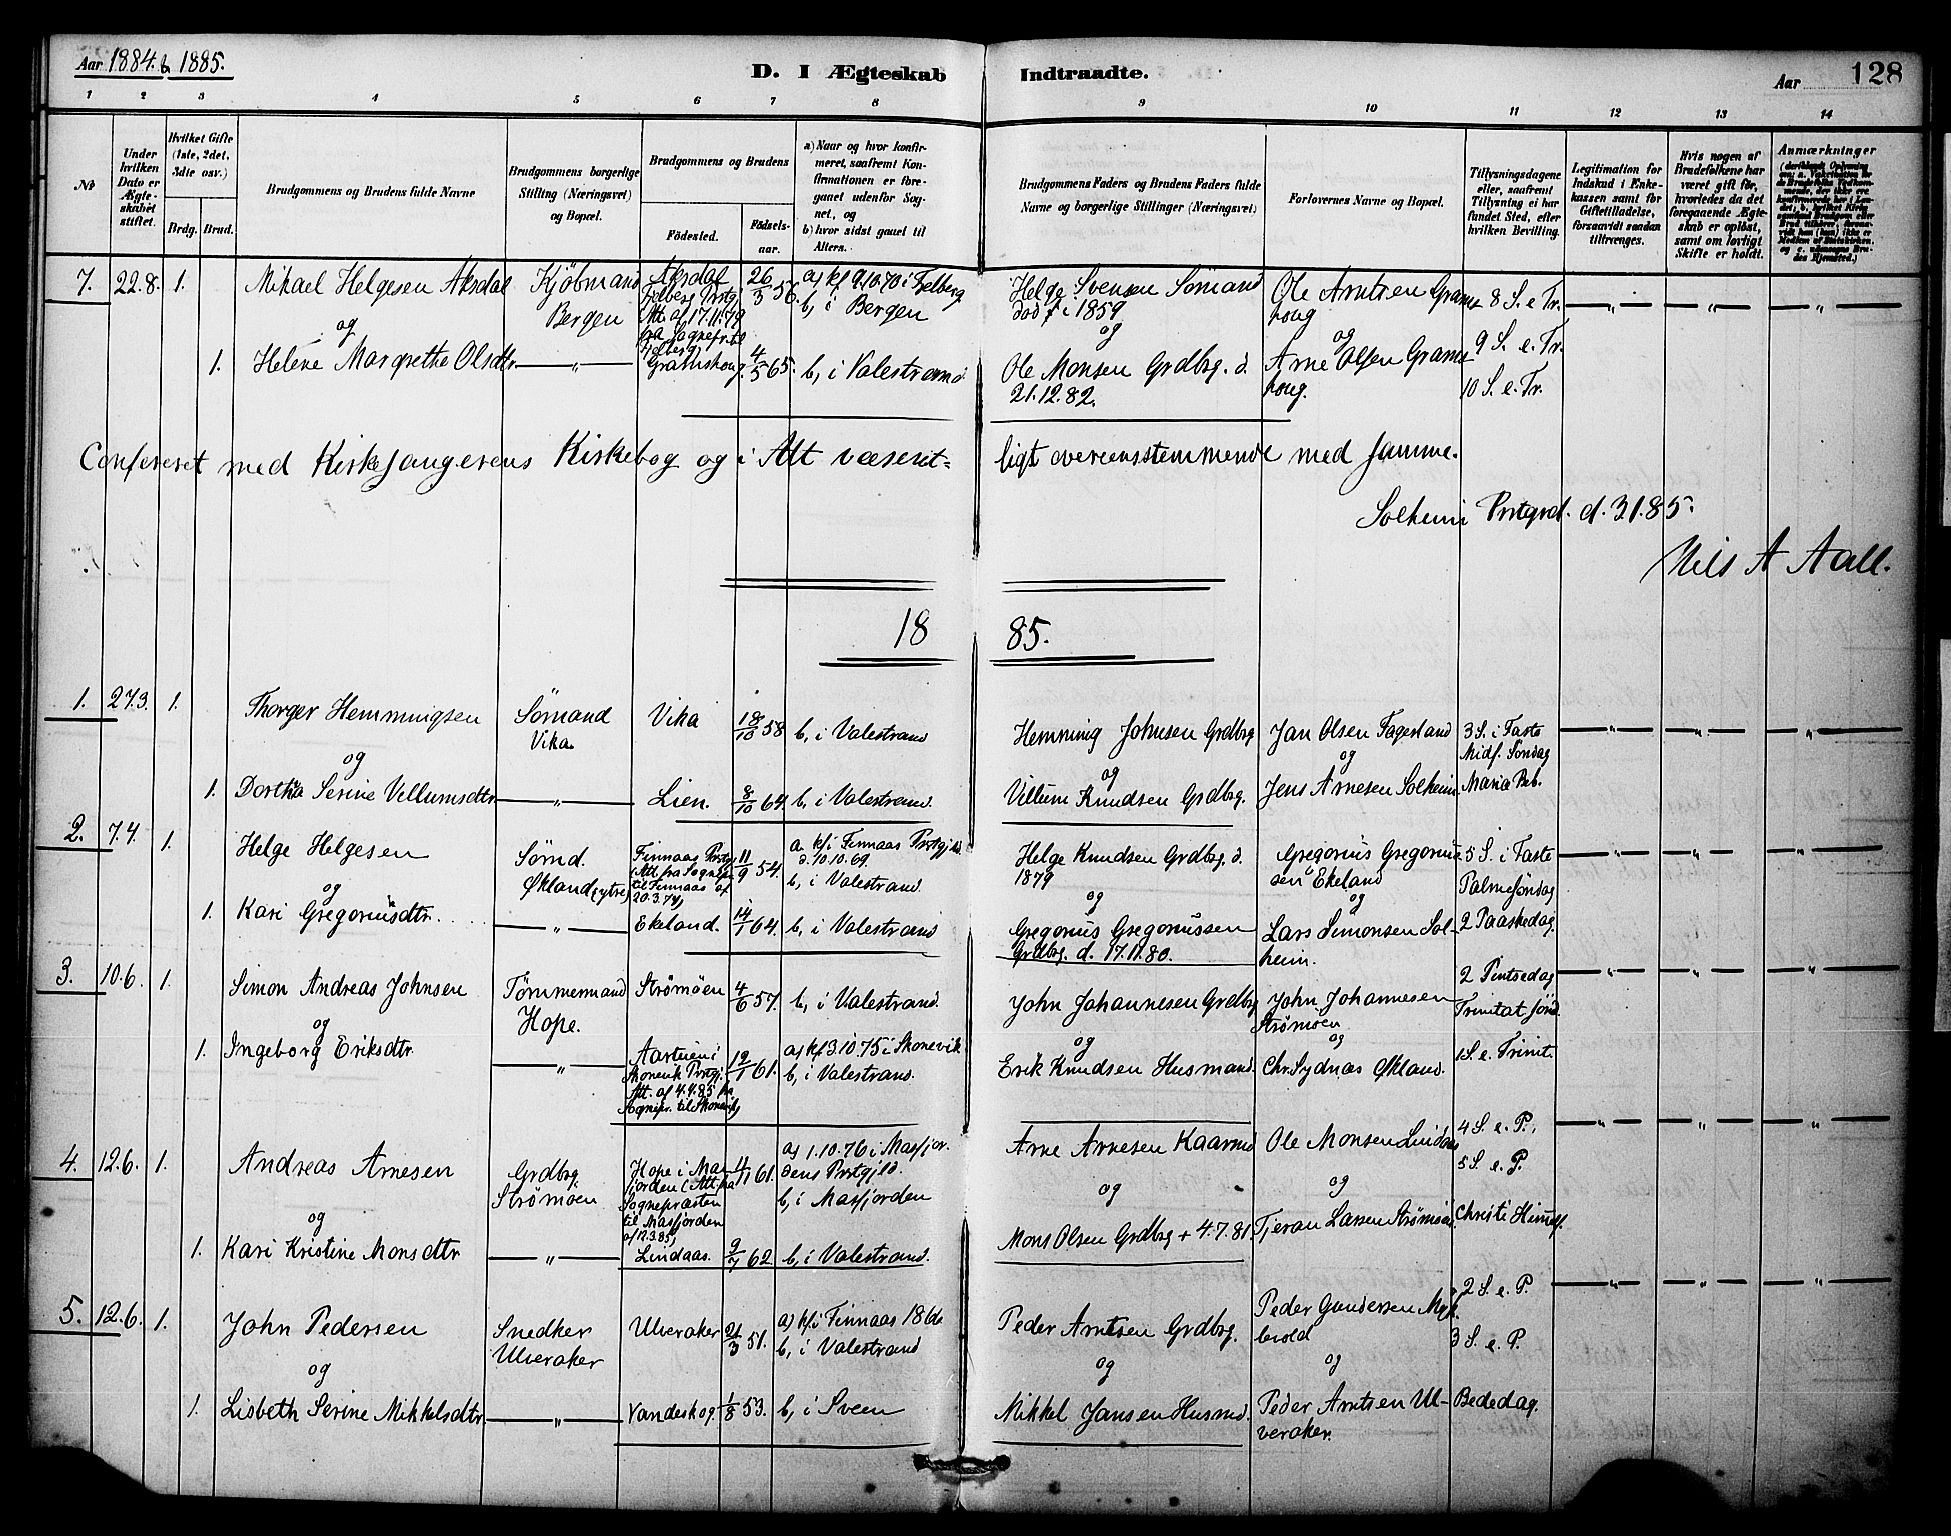 Aar 1884 & 1885.
D. I Ægteskab Indtraadte.
Aar 128
1 2 3 4 5 6 7 8 9 10 11 12 13 14
No
Under hvilken Dato er Ægteskabet stiftet.
Hvilket Gifte (1ste, 2det, 3die osv.)
Brdg. Brud.
Brudgommens og Brudens fulde Navne
Brudgommens borgerlige Stilling (Næringsvei) og Bopæl.
Brudgommens og Brudens
Fødested.
Fødselsaar.
a) Naar og hvor konfirmeret, saafremt Konfirmationen er foregaaet udenfor Sognet, og
b) hvor sidst gaaet til Alters.
Brudgommens Faders og Brudens Faders fulde Navne og borgerlige Stillinger (Næringsvei)
Forlovernes Navne og Bopæl.
Tillysningsdagene eller, saafremt Tillysning ei har fundet Sted, efter hvilken Bevilling.
Legitimation for Indskud i Enkekassen samt for Giftetilladelse, forsaavidt saadan tiltrænges.
Hvis nogen af Brudefolkene har været gift før, hvorledes da det foregaaende Ægteskab er opløst, samt om lovligt Skifte er holdt.
Anmærkninger
7. 22.8. 1. Mikael Helgesen Aksdal
Kjøbmand Bergen
Aksdal Fjelberg Prstg. Att. af 17.11.79 fra Sognepr. til Fjelberg
26/3 56.
a, kf 9.10.70 i Fjelberg
b, i Bergen
Helge Svensen Sømand død i 1859
Ole Arntsen Gramshoug
8 S. e Tr.
og
1. Helene Margrethe Olsdtr. — „ —
Gramshoug. 4/5 65. b, i Valestrand
Ole Monsen Grdbrg. d. 21.12.82.
og
Arne Olsen Gramshoug.
9 S. e. Tr.
10 S. e. Tr.
Confereret med Kirkesangerens Kirkebog og i Alt væsentligt overensstemmende med samme.
Solheim Prstgrd. d. 3.1.85.
Nils A Aall.
1885.
1. 27.3. 1. Thorger Hemmingsen
Sømand Vika.
Vika 18/10 58 b, i Valestrand
Hemming Johnsen Grdbrg
Jan Olsen Fagerland
3 S. i Faste
Midf. Søndag
og
1. Dorthea Serine Villumsdtr. — „ — Lien. 8/10 64 b, i Valestrand.
Villum Knudsen Grdbrg.
Jens Arnesen Solheim.
Mariæ Beb.
2. 7.4. 1. Helge Helgesen
Sørnd. Økland (ytre)
Finnaas Prstg. (Att. fra Sognepr. til Finnaas af 20.3.74)
11/9 54.
a. kf i Finnaas Prstgjld. d. 10.10.69.
b, i Valestrand.
Helge Knudsen Grdbrg. d. 1879
Gregorius Gregoriussen Ekeland
5 S. i Faste
Palmesøndag
og
1. Kari Gregoriusdtr. — „ — Ekeland. 14/1 64. b, i Valestrand
Gregorius Gregoriussen Grdbrg. d. 17.11.80.
og
Lars Simonsen Solheim.
2 Paaskedag.
3. 10.6. 1. Simon Andreas Johnsen
Tømmermand Hope.
Strømøen 4/6 57. b, i Valestrand.
John Johannesen Grdbrg
John Johannesen Strømøen
2 Pintsedag
Trinitat. Sønd.
og
1. Ingeborg Eriksdtr. — „ —
Aartueni Skonevik Prstgj. Att. af 4.4.85 fra Sognepr. til Skonevik
12/1 61.
a, kf 3.10.75 i Skonevik
b, i Valestrand.
Erik Knudsen Husmand.
og
Chr. Sydnæs Økland.
1 S. e. Trinit.
4. 12.6. 1. Andreas Arnesen
Grdbrg. Strømøen
Hope i Masfjorden (Att. fra Sognepræsten til Masfjorden af 12.3.85)
4/1 61.
a, 1.10.76 i Masfjordens Prstgjld.
b, i Masfjorden
Arne Arnesen Kaarmd
Ole Monsen Lindaas
4 S. e. P.,
5 S. e. P.
og
1. Kari Kristine Monsdtr — „ — Lindaas. 9/7 62 b, i Valestrand.
Mons Olsen Grdbrg + 4.7.81.
og
Tjeran Larsen Strømøen.
Christi Himmelf.
5. 12.6. 1. John Pedersen
Snedker Ulveraker
Ulveraker 21/3 51.
a) kf i Finnaas 1866
b, i Valestrand
Peder Arntsen Grdbrg.
Peder Gundersen
2 S. e. P.
3 S. e. P.
og
1. Lisbeth Serine Mikkelsdtr. — „ — Vandeskog. 1/8 53. b, i Sveen
Mikkel Jansen Husmd.
og
Peder Arntsen Ulveraker.
Bededag.